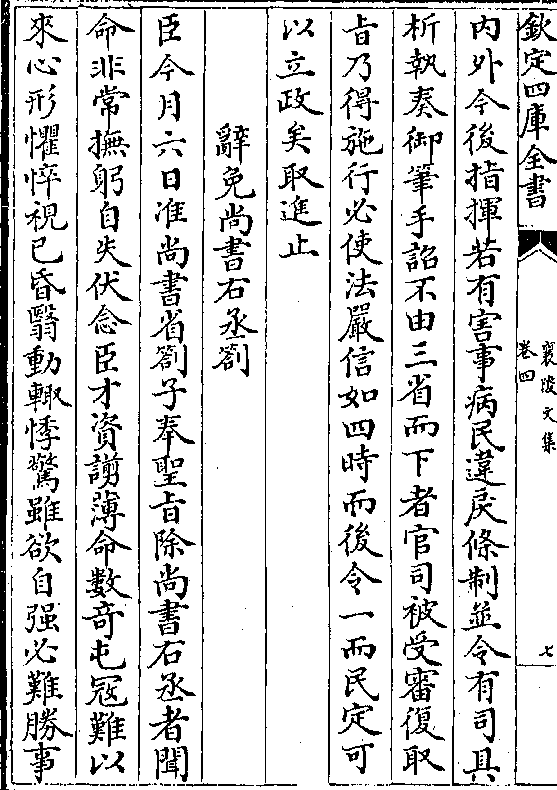 欽定四庫全書
襄陵文集
卷四
七
內外今後指揮若有害事病民違戾條制並令有司具
析執奏御筆手詔不由三省而下者官司被受審復取
旨乃得施行必使法嚴信如四時而後令一而民定可
以立政矣取進止
辭免尚書右丞劄
臣今月六日准尚書省劄子奉聖旨除尚書右丞者聞
命非常撫躬自失伏念臣才資謭薄命數奇屯冦難以
來心形懼悴視已昏翳動輙悸驚雖欲自强必難勝事